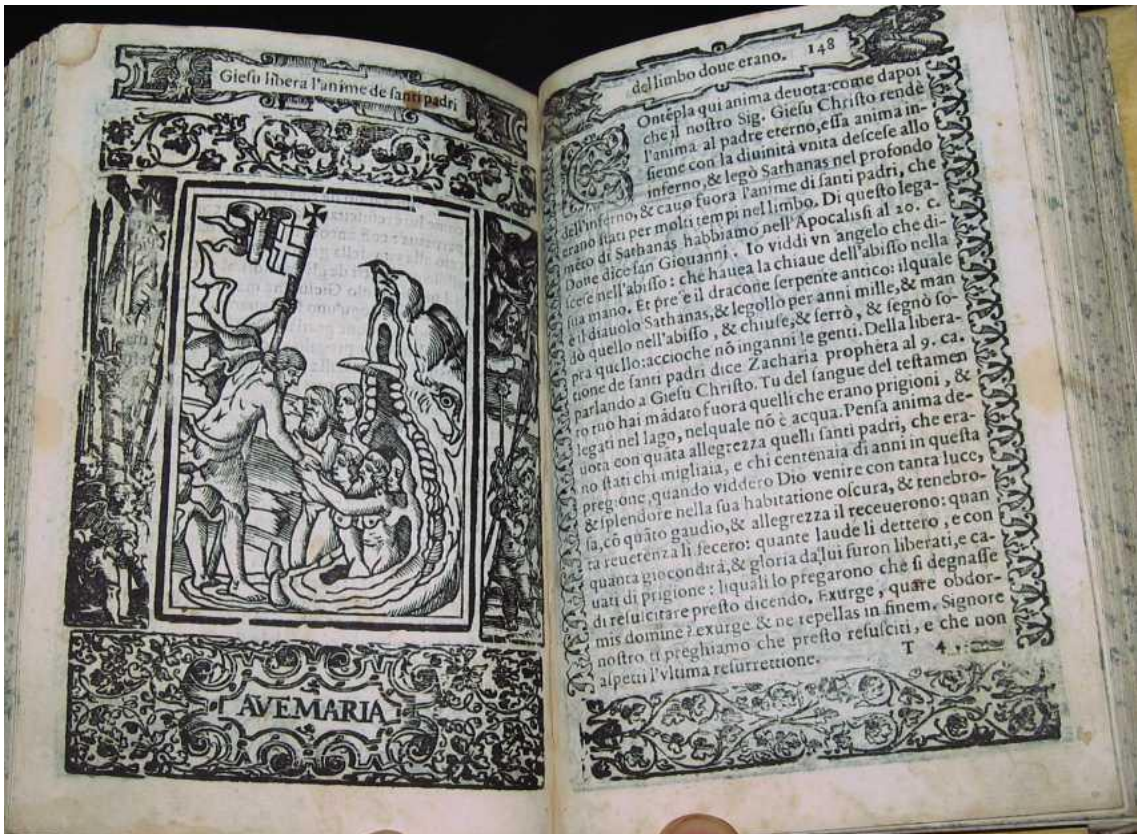 Giesu libera l'anime de santi padri
AVE MARIA
del limbo doue erano. 148
COntẽpla qui anima deuota: come dapoi
che il nostro Sig. Giesu Christo rendè
l'anima al padre eterno, essa anima in-
sieme con la diuinità vnita descese allo
inferno, & legò Sathanas nel profondo
dell'inferno, & cauo fuora l'anime di santi padri, che
erano stati per molti tempi nel limbo. Di questo lega-
mẽto di Sathanas habbiamo nell'Apocalissi al 20. c.
Doue dice san Giouanni. Io viddi vn angelo che di-
scese nell'abisso: che hauea la chiaue dell'abisso nella
sua mano. Et prese il dracone serpente antico: ilquale
è il diauolo Sathanas, & legollo per anni mille, & man
dò quello nell'abisso, & chiuse, & serrò, & segnò so-
pra quello: accioche nõ inganni le genti. Della libera-
tione de santi padri dice Zacharia propheta al 9. ca.
parlando a Giesu Christo. Tu del sangue del testamen
to tuo hai mãdato fuora quelli che erano prigioni, &
legati nel lago, nelquale nõ è acqua. Pensa anima de-
uota con quãta allegrezza quelli santi padri, che era-
no stati chi migliaia, e chi centenaia di anni in questa
pregione, quando viddero Dio venire con tanta luce,
& splendore nella sua habitatione oscura, & tenebro-
sa, cõ quãto gaudio, & allegrezza il receuerono: quan
ta reuerenza li fecero: quante laude li dettero, e con
quanta giocondità, & gloria da lui furon liberati, e ca-
uati di prigione: liquali lo pregarono che si degnasse
di resuscitare presto dicendo. Exurge, quare obdor-
mis domine? exurge & ne repellas in finem. Signore
nostro ti preghiamo che presto resusciti, e che non
aspetti l'vltima resurrettione.
T 4